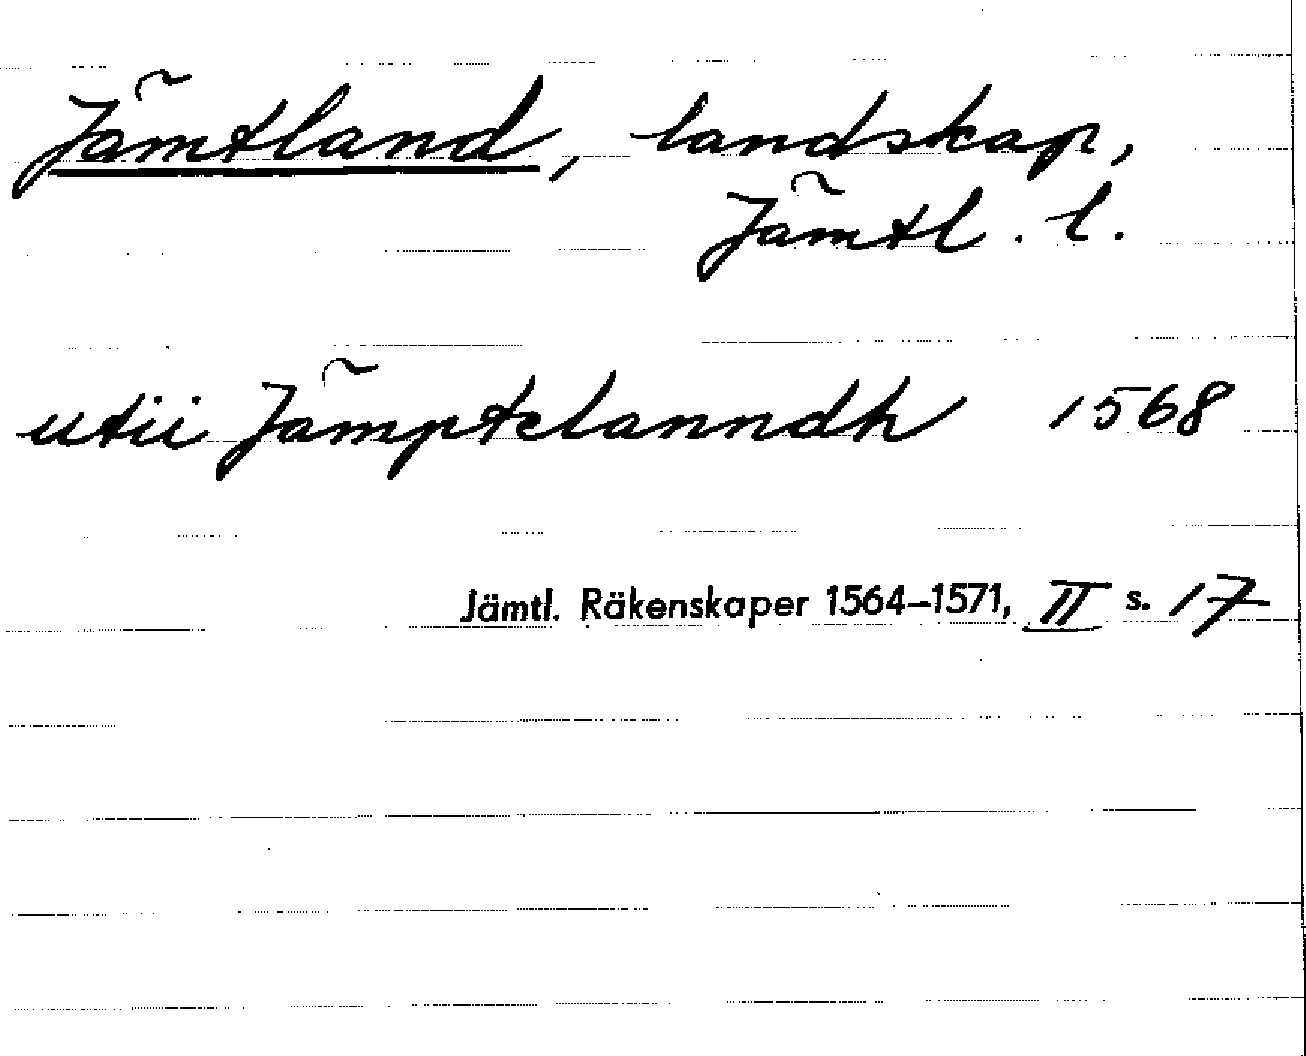 Jämtland, landskap,
Jämtl. l.
utii Jämptelanndh 1568
Jämtl. Räkenskaper 1564–1571, II s. 17